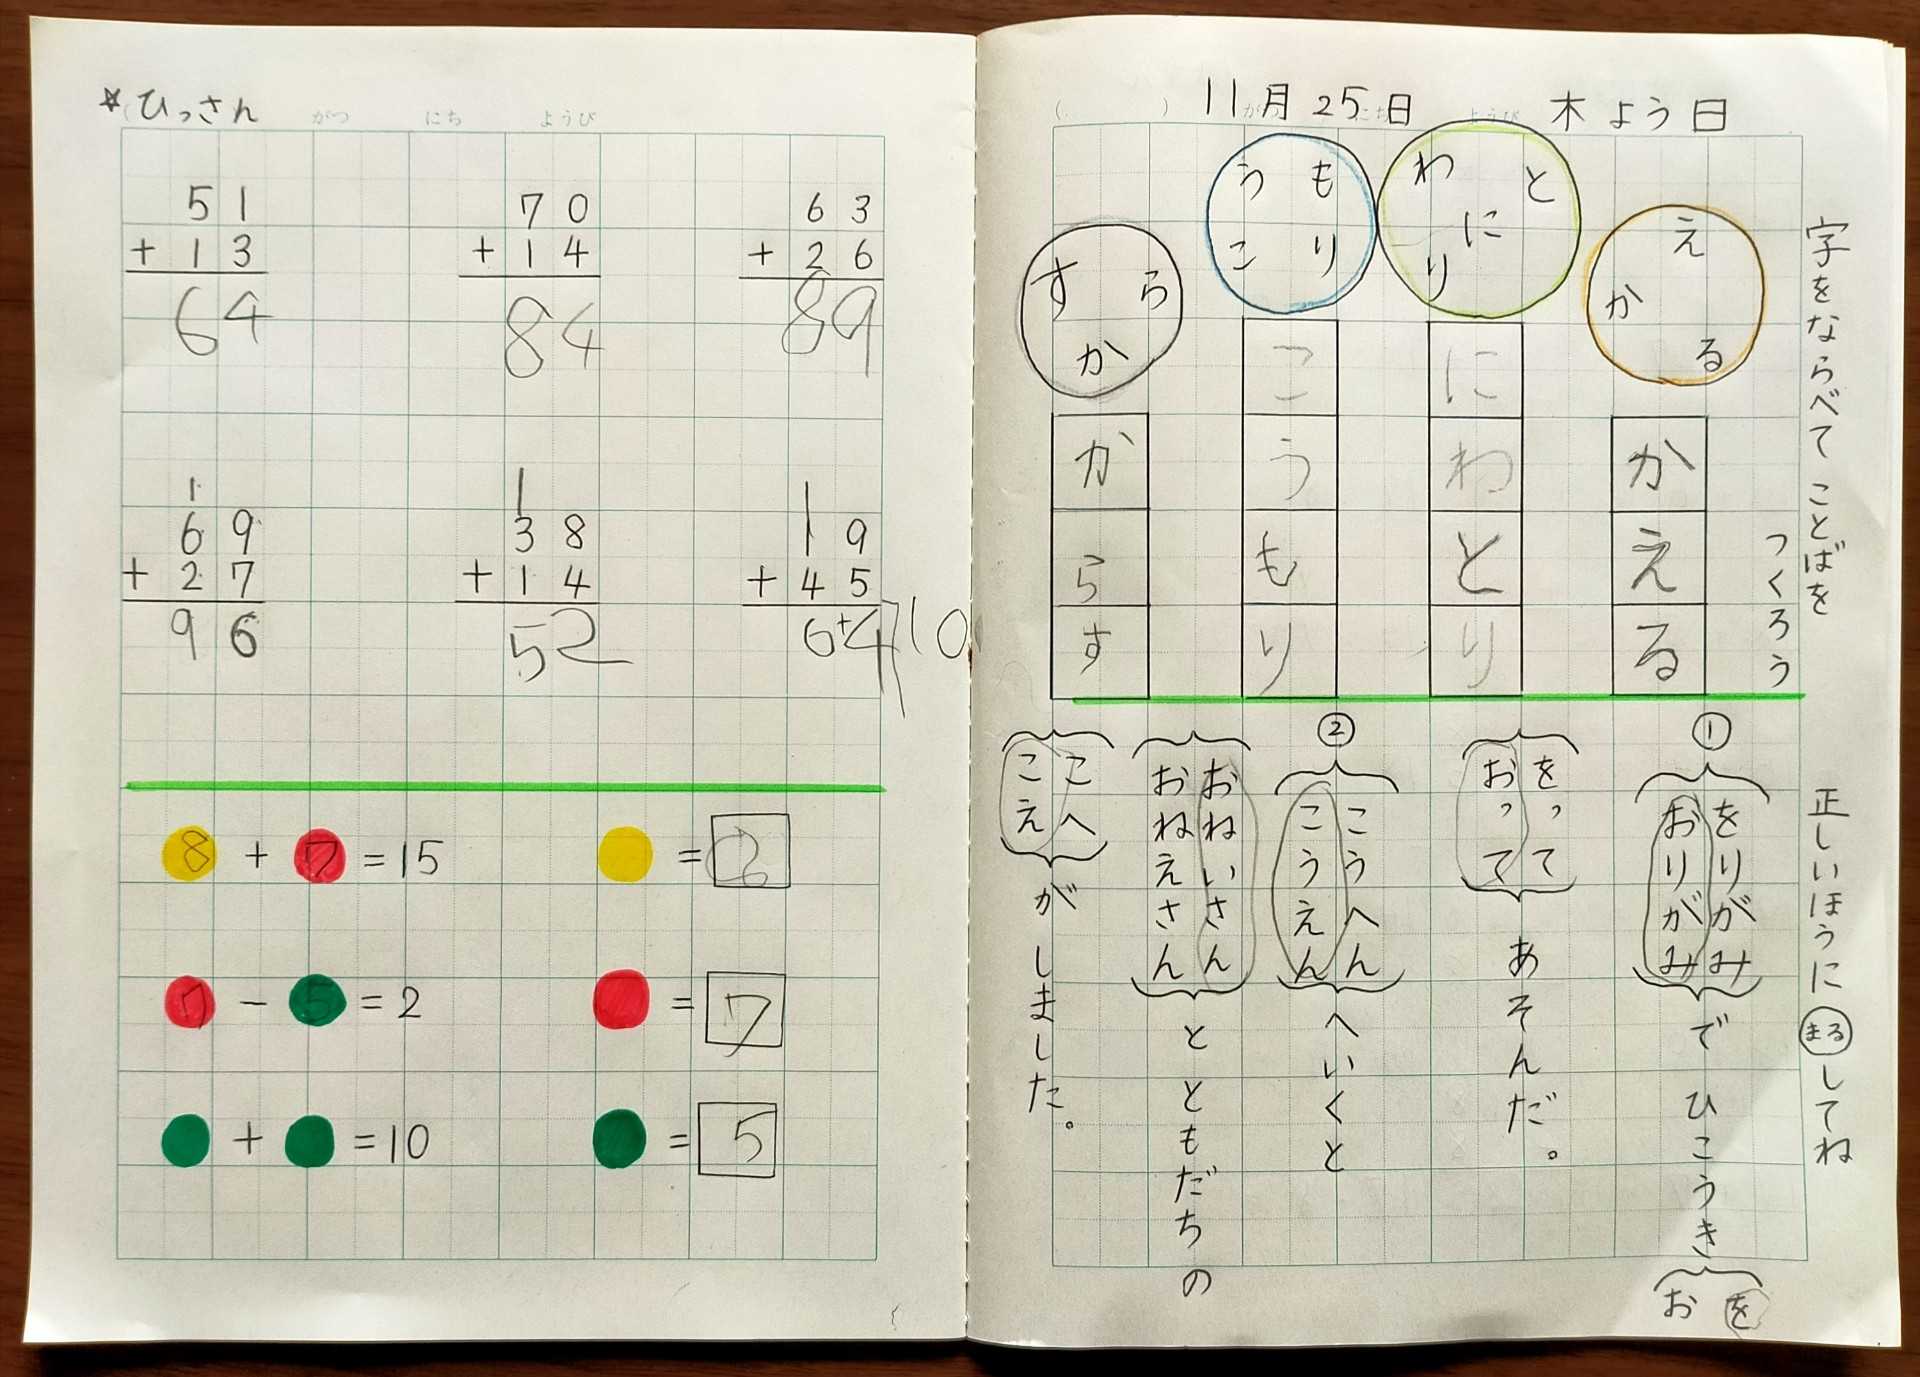 ☆ひっさん
がつ にち ようび
51
+13
64
70
+14
84
63
+26
89
1
69
+27
96
1
38
+14
52
19
+45
64
10
8 + 7 = 15
= 8
7 - 5 = 2
= 7
+ = 10
= 5
11月25日 木よう日
字をならべてことばを
つくろう
え
か
る
かえる
わ
と
に
り
にわとり
う
も
こ
り
こうもり
す
ら
か
からす
正しいほうにまるしてね
①
をりがみ
おりがみ
で ひこうき
を
お
をって
おって
あそんだ。
②
こうへん
こうえん
へいくと
おねいさん
おねえさん
と ともだちの
こへ
こえ
が しました。